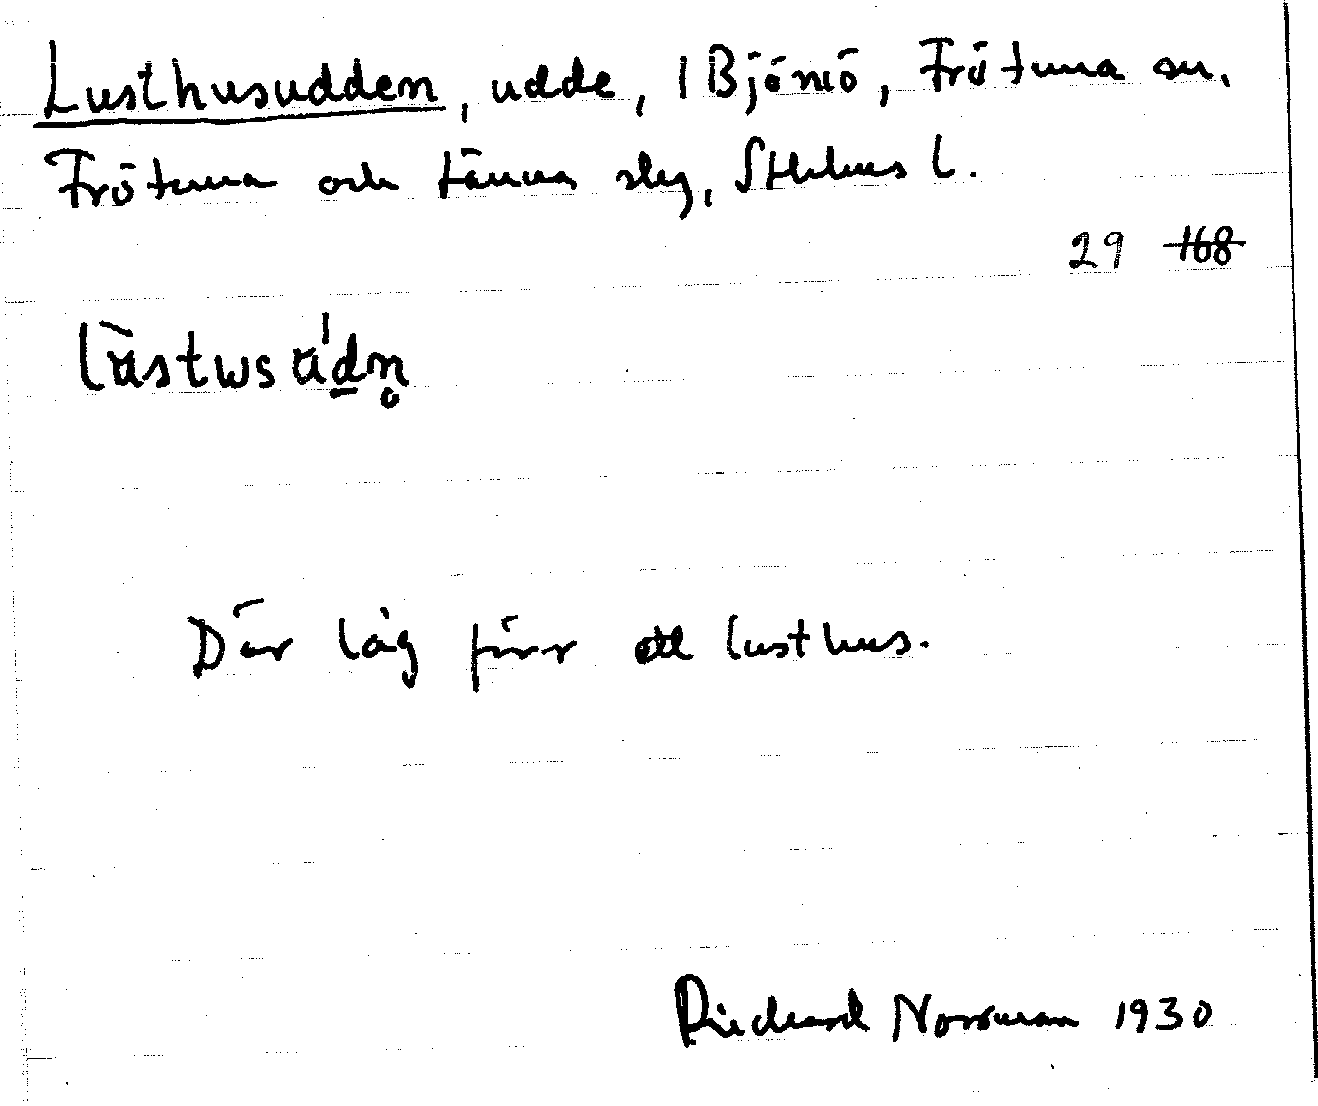 Lusthusudden, udde, I Björnö, Frötuna sn.
Frötuna och Länna slg, Sthlms l.
29 168
Där låg förr ett lusthus.
Richard Norrman 1930